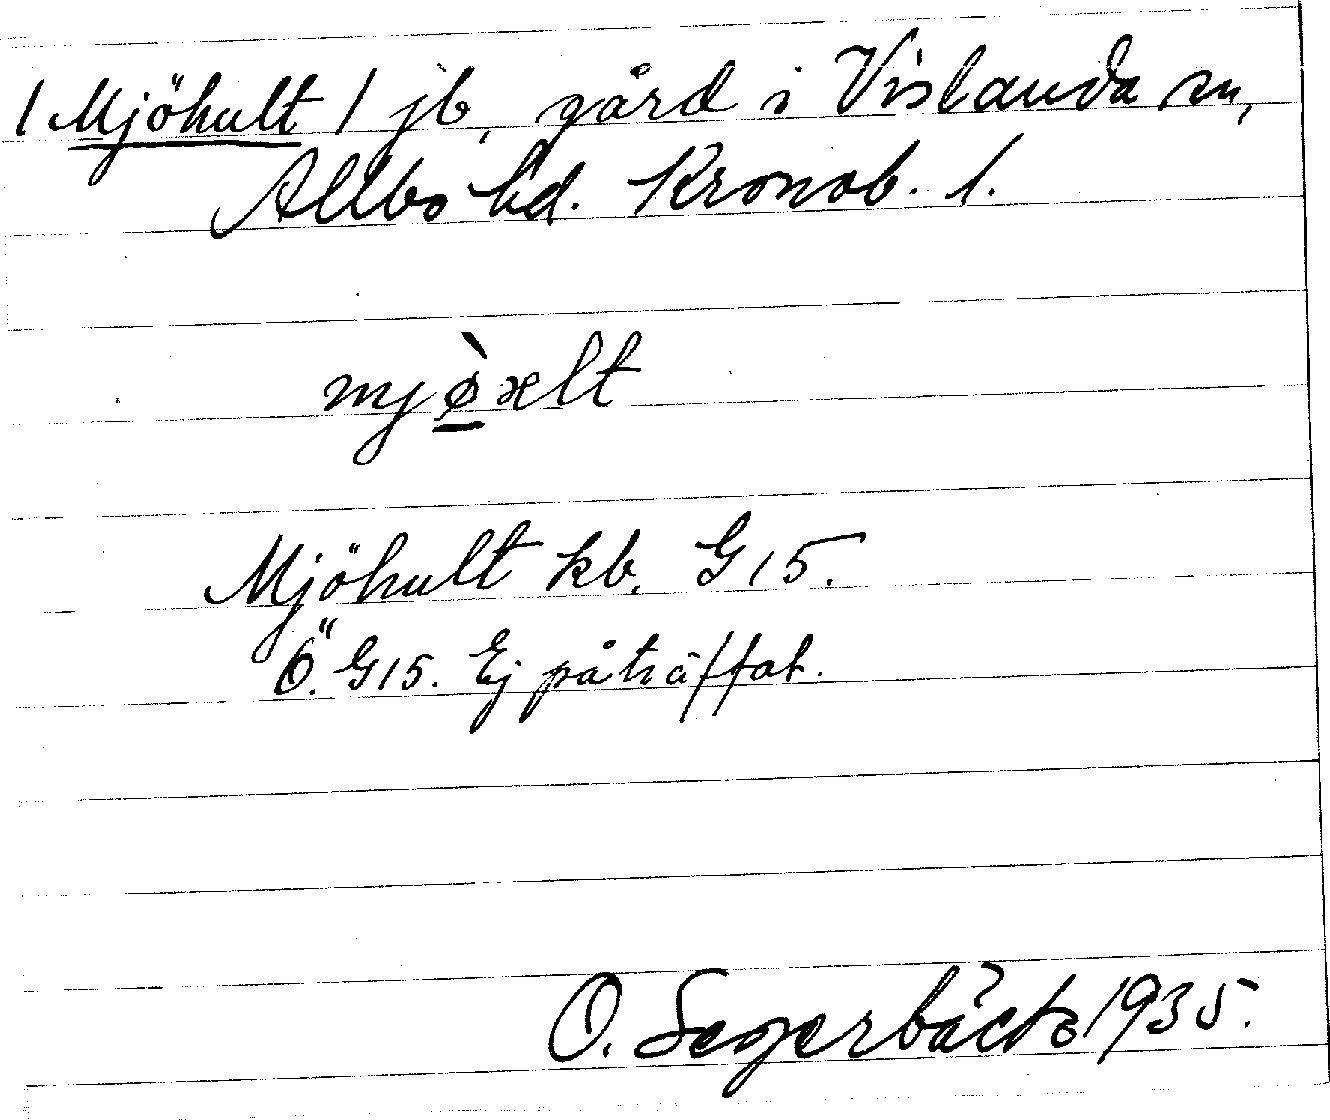 / Mjöhult / jb, gård i Vislanda sn,
Allbo hd. Kronob. l.
mjø̀xelt
Mjöhult kb. G15.
Ö. G15. Ej påträffat.
O. Segerbäck 1935.